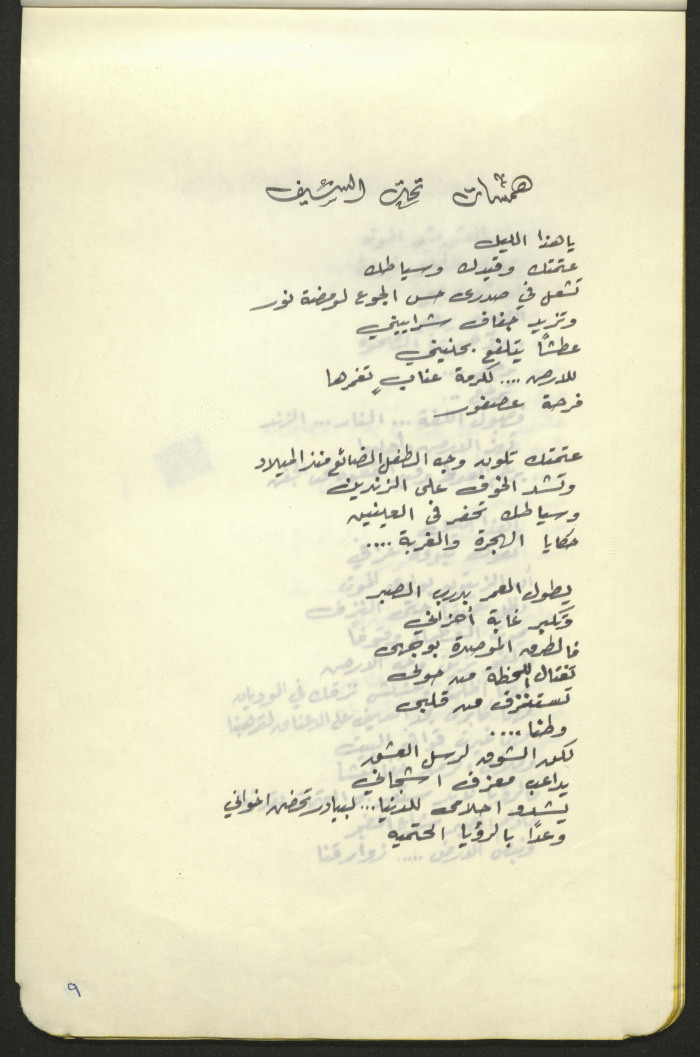 همسات تحت السيف
يا هذا الليل
عتمتك وقيدك وسياطك
تشعل في صدرى حس الجوع لومضة نور
وتزيد جفاف شراييني
عطشاً يتلفع بحنيني
للارض .... لكرمة عنابٍ تغمرها
فرحة عصفور
عتمتك تلون وجه الطفل الضائع منذ الميلاد
وتشد الخوف على الزندين
وسياطك تحفر في العينين
حكايا الهجرة والغربة ....
يطول العمر بدرب الصبر
وتكبر غابة أحزاني
فالطرق الموصدة بوجهى
تغتال اللحظة من حولى
تستنزف من قلبى
وطنا ....
لكن الشوق لرسل العشق
يداعب معزف اشجاني
يشدو احلامى للدنيا... لبيادر تحضن اخواني
وعدًا بالرؤيا الحتميه
٩